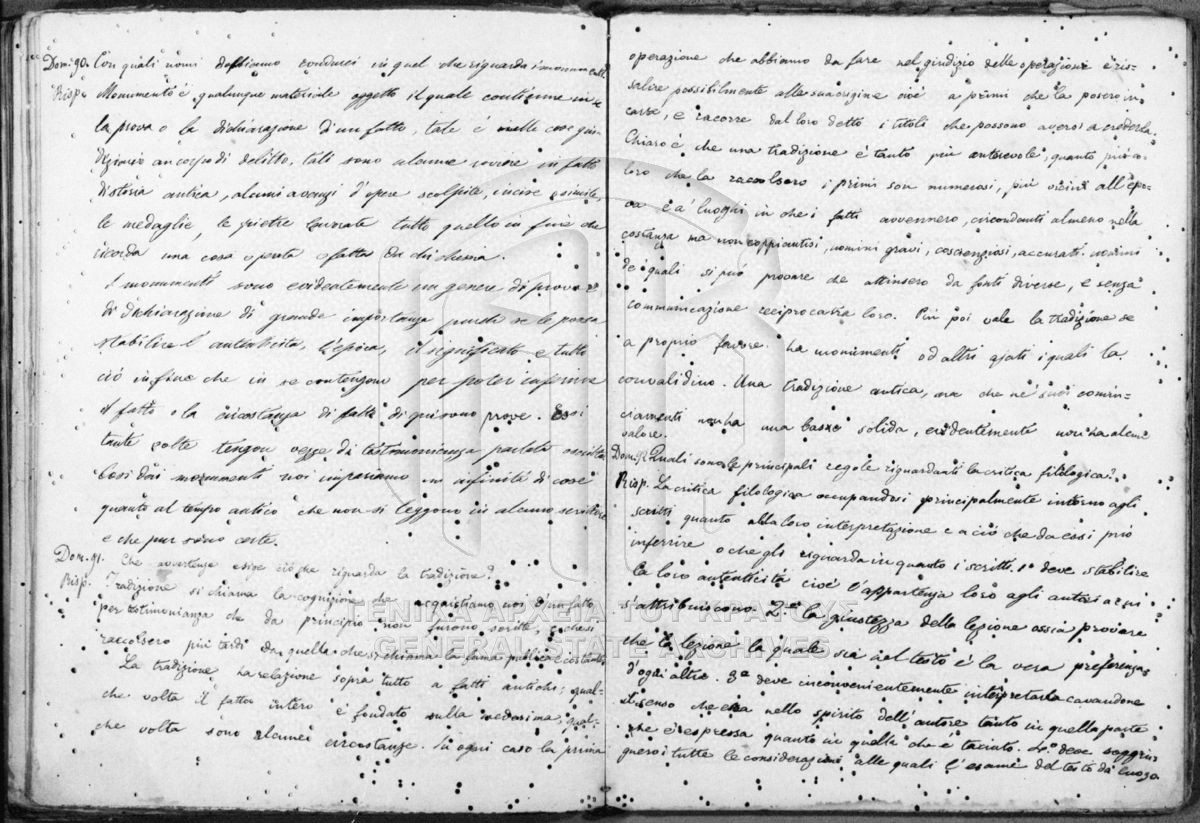 Dom. 90. Con quali nomi dobbiamo condurci in quel che riguarda i monumenti
Risp. Monumento è qualunque materiale oggetto il quale contiene in se
la prova o la dichiarazione d'un fatto, tale è nelle cose giu-
diziarie un corpo di delitto, tali sono alcune rovine in fatto
di storia antica, alcuni avanzi d'opere scolpite, incise e simili,
le medaglie, le pietre lavorate tutto quello in fine che
ricorda una cosa operata o fatta da chichessia.
I monumenti sono evidentemente un genere di prova e
di dichiarazione di grande importanza purchè se le possa
stabilire l'autenticita, l'epoca, il significato e tutto
ciò infine che in se contengono per poter inferire
il fatto o la circostanza di fatto di cui sono prove. Essi
tante volte tengon vece di testimonianza parlata o scritta
Così dai monumenti noi impariamo un infinità di cose
quanto al tempo antico che non si leggono in alcuno scrittore
e che pur sono certe.
Dom. 91. Che avvertenze esige ciò che riguarda la tradizione?
Risp. Tradizione si chiama la cognizione che acquistiamo noi d'un fatto
per testimonianza che da principio non furono scritte, e che si
raccolsero più tardi da quella che si chiama la fama publica e costante
La tradizione ha relazione sopra tutto a fatti antichi; qual-
che volta il fatto intero è fondato sulla medesima, qual-
che volta sono alcune circostanze. In ogni caso la prima
operazione che abbiamo da fare nel giudizio delle operazioni è ris-
salire possibilmente alle sua origine cioè a primi che la posero in
carta, e racorre dal loro detto i titoli che possono aversi a crederla.
Chiaro è che una tradizione è tanto più autorevole, quanto più co-
loro che la raccolsero i primi son numerosi, più vicini all'epo-
ca e a' luoghi in che i fatti avvennero, circondanti almeno nella
costanza ma non coppiantisi, uomini gravi, coscienziosi, accurati. uomini
de quali si può provare che attinsero da fonti diverse, e senza
communicazione reciproca tra loro. Più poi vale la tradizione se
a proprio favore ha monumenti od altri ajuti i quali la
convalidino. Una tradizione antica, ma che nè suoi comin-
ciamenti non ha una base solida, evidentemente non ha alcun
valore.
Dom. 92. Quali sono le principali regole riguardanti la critica filologica?
Risp. La critica filologica occupandosi principalmente intorno agli
scritti quanto alla loro interpretazione e a ciò che da essi può
inferrire o che gli riguarda in quanto i scritti. 1º deve stabilire
la loro autenticità cioè l'appartenza loro agli autori a cui
s'attribuiscono. 2º la giustezza della lezione ossia provare
che la lezione la quale sia nel testo è la vera preferenza
d'ogni altra. 3º deve inconvenientemente interpretarla cavandone
il senso che era nello spirito dell'autore tanto in quella parte
che è espressa quanto in quella che è taciuto. 4º deve soggiu-
gnervi tutte le considerazioni alle quali l'esame del testo dà luogo
ΓΕΝΙΚΑ ΑΡΧΕΙΑ ΤΟΥ ΚΡΑΤΟΥΣ
GENERAL STATE ARCHIVES